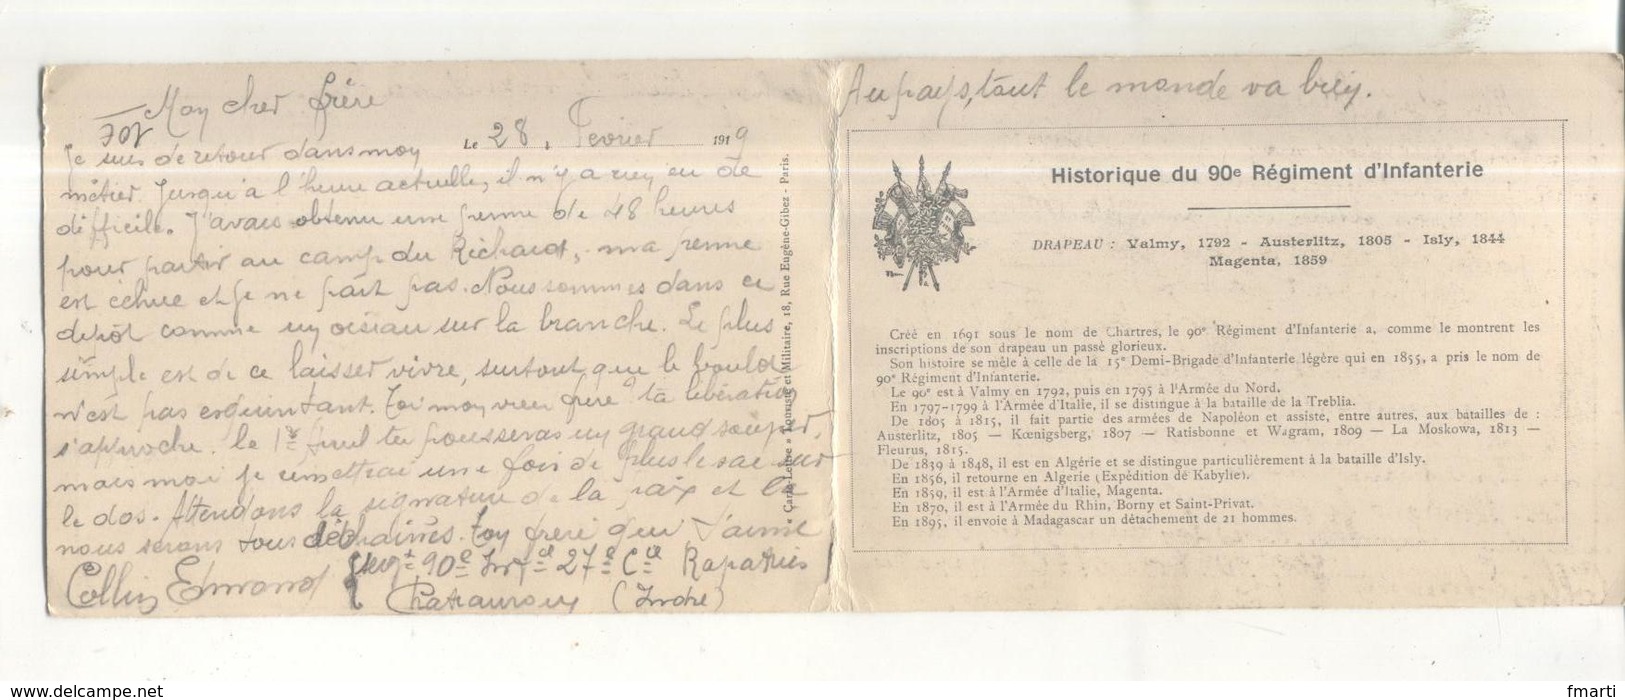 Mon cher frère
Le 28 Fevrier 1919
Je suis de retour dans mon
métier. Jusqu'à l'heure actuelle, il n'y a rien eu de
difficile. J'avais obtenu une perme de 48 heures
pour partir au camp du Richard, ma perme
est échue et je ne part pas. Nous sommes dans ce
dépôt comme un oiseau sur la branche. Le plus
simple est de ce laisser vivre, surtout que le boulot
n'est pas esquintant. Toi mon vieux frère ta libération
s'approche. le 1er tu pousseras un grand soupir,
mais moi je remettrai une fois de plus le sac sur
le dos. Attendons la signature de la paix et la
nous serons tous déchainés. Ton frère qui t'aime
Collin Edmond Sergt 90e Infie 27e Cie Rapatriés
Chateauroux (Indre)
« Carte-Lettre » Touriste et Militaire, 18, Rue Eugène-Gibez - Paris.
Au pays, tout le monde va bien.
Historique du 90e Régiment d'Infanterie
DRAPEAU : Valmy, 1792 - Austerlitz, 1805 - Isly, 1844
Magenta, 1859
Créé en 1691 sous le nom de Chartres, le 90e Régiment d'Infanterie a, comme le montrent les
inscriptions de son drapeau un passé glorieux.
Son histoire se mêle à celle de la 15e Demi-Brigade d'Infanterie légère qui en 1855, a pris le nom de
90e Régiment d'Infanterie.
Le 90e est à Valmy en 1792, puis en 1795 à l'Armée du Nord.
En 1797-1799 à l'Armée d'Italie, il se distingue à la bataille de la Treblia.
De 1605 à 1815, il fait partie des armées de Napoléon et assiste, entre autres, aux batailles de :
Austerlitz, 1805 — Kœnigsberg, 1807 — Ratisbonne et Wagram, 1809 — La Moskowa, 1813 —
Fleurus, 1815.
De 1839 à 1848, il est en Algérie et se distingue particulièrement à la bataille d'Isly.
En 1856, il retourne en Algerie (Expédition de Kabylie).
En 1859, il est à l'Armée d'Italie, Magenta.
En 1870, il est à l'Armée du Rhin, Borny et Saint-Privat.
En 1895, il envoie à Madagascar un détachement de 21 hommes.
fmarti